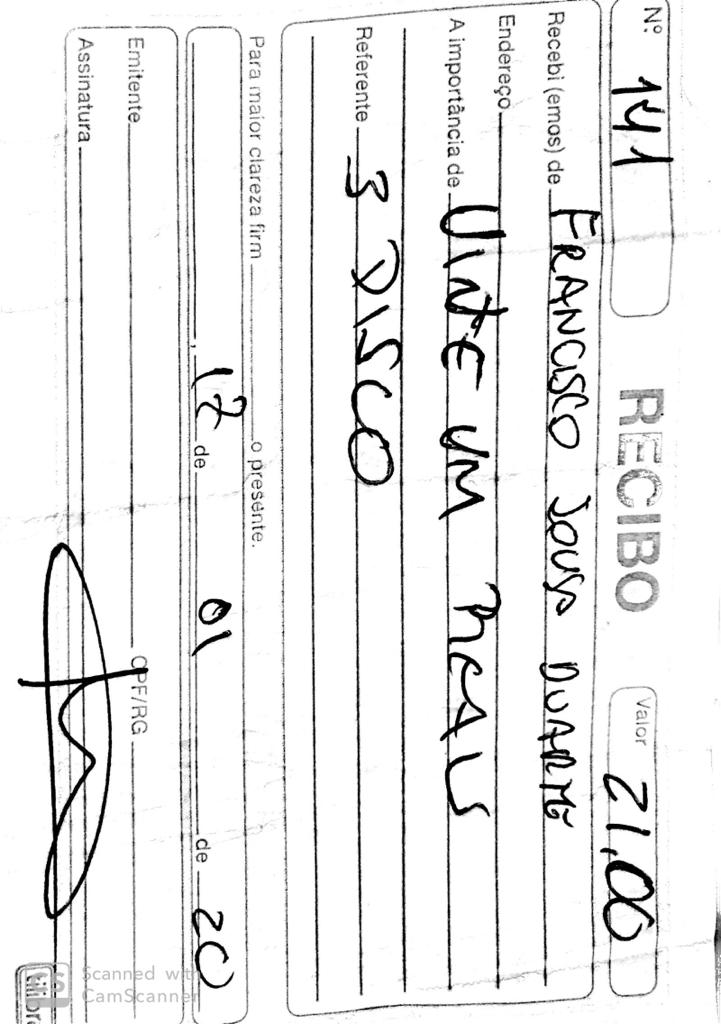 Nº 141 RECIBO Valor 21,00
Recebi (emos) de FRANCISCO SOUSA DUARTE
Endereço
A importância de VINTE UM REAIS
Referente 3 DISCO
Para maior clareza firm o presente.
, 17 de 01 de 20
Emitente CPF/RG
Assinatura
tilibra
CS Scanned with CamScanner